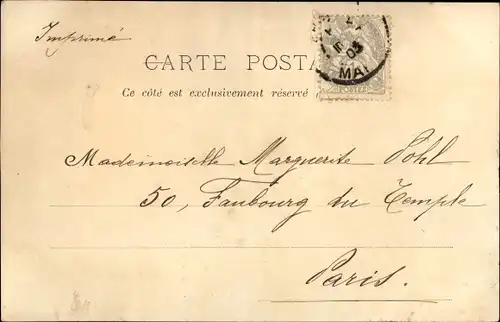 Imprimé
CARTE POSTA
Ce côté est exclusivement réservé
MAI
03
POSTES
Mademoiselle Marguerite Pohl
50, Faubourg du Temple
Paris.